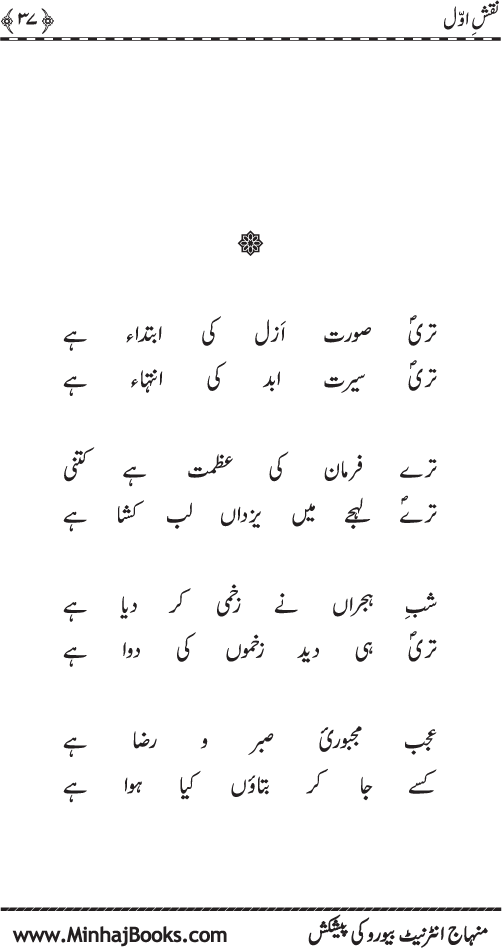 نقشِ اوّل
﴿ ۳۷ ﴾
تریؐ صورت اَزل کی ابتداء ہے
تریؐ سیرت ابد کی انتہاء ہے
ترے فرمان کی عظمت ہے کتنی
ترےؐ لہجے میں یزداں لب کشا ہے
شبِ ہجراں نے زخمی کر دیا ہے
تریؐ ہی دید زخموں کی دوا ہے
عجب مجبوریٔ صبر و رضا ہے
کسے جا کر بتاؤں کیا ہوا ہے
منہاج انٹرنیٹ بیورو کی پیشکش
www.MinhajBooks.com